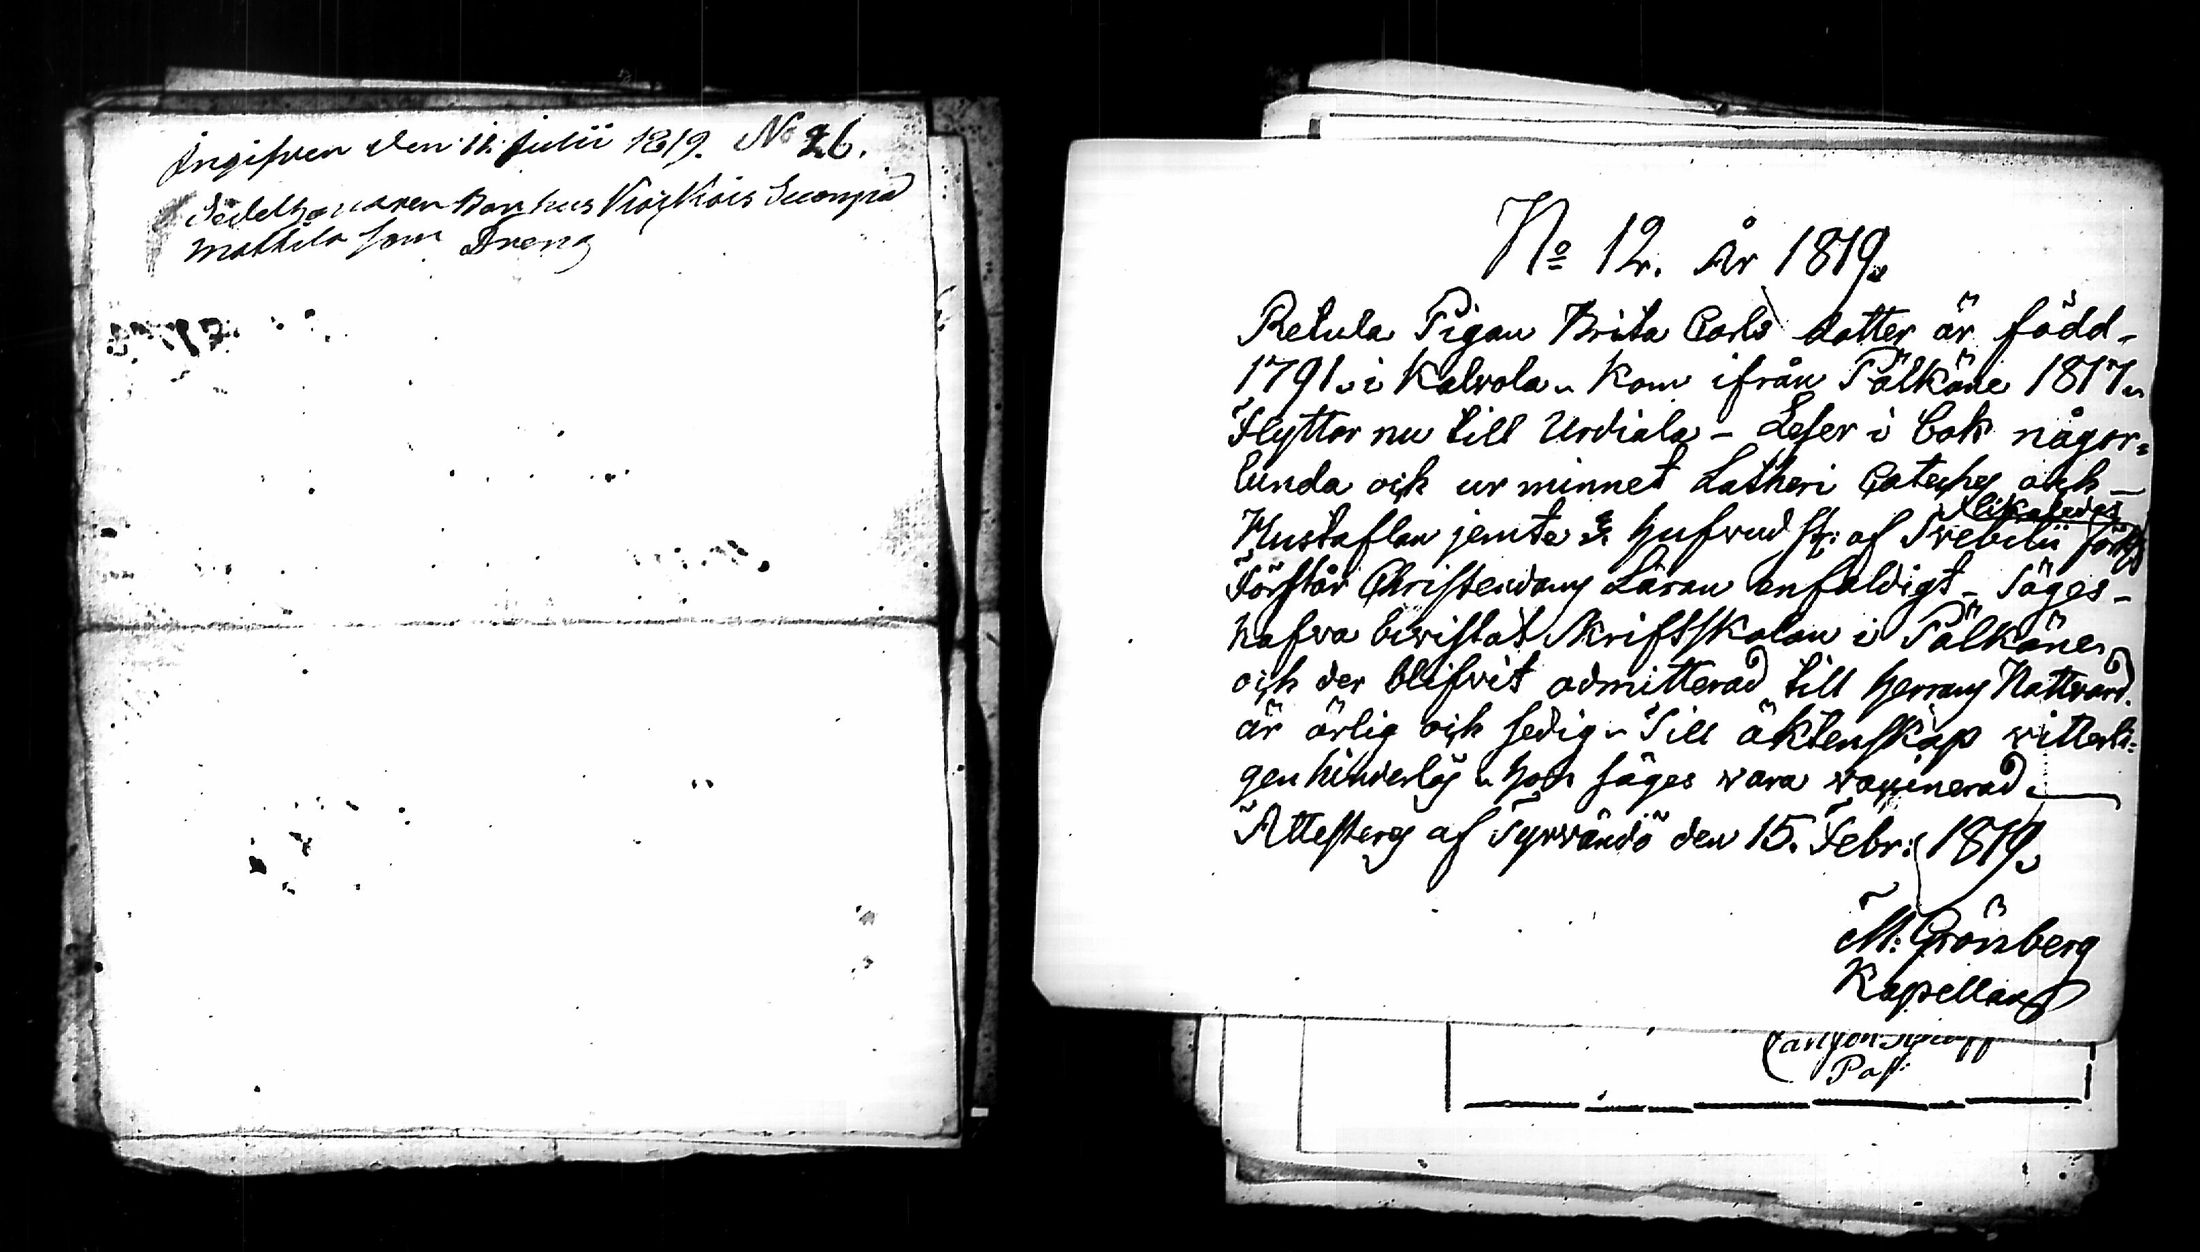 Ingifven den 11 Julii 1819. No 26.
Sedelhafvaren
mattila som Dreng
No 12. År 1819.
Retula Pigan Brita Carls dotter är född -
1791. i Kalvola. Kom ifrån Pälkäne 1817.
Flyttar nu till Urdiala - Läser i bok någor=
lunda och ur minnet Lutheri Cateches och -
Hustaflan jemte hufvud st: af Svebilii
Förstår Christendoms Läran enfaldigt - Säges -
hafva bevistat Skriftskolan i Pälkäne,
och der blifvit admitterad till Herrans Nattvard.
är ärlig och sedig. Till äktenskap vitterli=
gen hinderlös. hon säges vara vaxinerad.
Attesteras af Tyrvändö den 15. Febr: 1819.
M: Grönberg
Kapellan
Past: